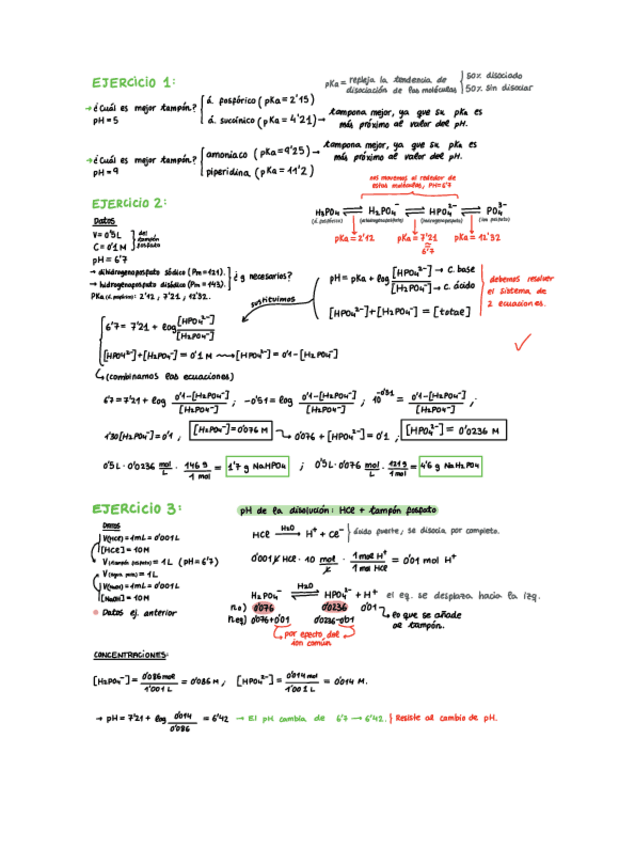 EJERCICIO 1:
pKa = refleja la tendencia de disociación de las moléculas { 50% disociado
50% sin disociar
→ ¿Cuál es mejor tampón? { á. fosfórico (pKa = 2'15)
pH = 5 á. succínico (pKa = 4'21) → tampona mejor, ya que su pKa es
más próximo al valor del pH.
→ ¿Cuál es mejor tampón? { amoniaco (pKa = 9'25) → tampona mejor, ya que su pKa es
más próximo al valor del pH.
pH = 9 piperidina (pKa = 11'2)
EJERCICIO 2:
nos movemos al rededor de
estas moléculas, pH=6'7
Datos
V = 0'5 L
C = 0'1 M } del tampón fosfato
pH = 6'7
H₃PO₄ ⇌ H₂PO₄⁻ ⇌ HPO₄²⁻ ⇌ PO₄³⁻
(á. fosfórico) (dihidrogenofosfato) (hidrogenofosfato) (ion fosfato)
pKa = 2'12 pKa = 7'21 pKa = 12'32
≈
6'7
→ dihidrogenofosfato sódico (Pm = 121).
→ hidrogenofosfato disódico (Pm = 143). } ¿g necesarios?
PKa (á. fosfórico): 2'12, 7'21, 12'32.
pH = pKa + log [HPO₄²⁻] → c. base
[H₂PO₄⁻] → c. ácido
[HPO₄²⁻] + [H₂PO₄⁻] = [total]
debemos resolver
el sistema de
2 ecuaciones.
sustituimos
6'7 = 7'21 + log [HPO₄²⁻] / [H₂PO₄⁻]
[HPO₄²⁻] + [H₂PO₄⁻] = 0'1 M → [HPO₄²⁻] = 0'1 - [H₂PO₄⁻]
(combinamos las ecuaciones)
6'7 = 7'21 + log 0'1-[H₂PO₄⁻] / [H₂PO₄⁻] ; -0'51 = log 0'1-[H₂PO₄⁻] / [H₂PO₄⁻] ; 10^-0'51 = 0'1-[H₂PO₄⁻] / [H₂PO₄⁻] ;
1'30 [H₂PO₄⁻] = 0'1 , [H₂PO₄⁻] = 0'076 M → 0'076 + [HPO₄²⁻] = 0'1 ; [HPO₄²⁻] = 0'0236 M
0'5 L · 0'0236 mol/L · 146 g / 1 mol = 1'7 g NaHPO₄ ; 0'5 L · 0'076 mol/L · 121 g / 1 mol = 4'6 g NaH₂PO₄
EJERCICIO 3:
pH de la disolución: HCl + tampón fosfato
Datos
V(HCl) = 1 mL = 0'001 L
[HCl] = 10 M
V(tampón fosfato) = 1 L (pH = 6'7)
V(agua pura) = 1 L
V(NaOH) = 1 mL = 0'001 L
[NaOH] = 10 M
Datos ej. anterior
HCl —H₂O→ H⁺ + Cl⁻ } ácido fuerte, se disocia por completo.
0'001 L HCl · 10 mol/L · 1 mol H⁺ / 1 mol HCl = 0'01 mol H⁺
H₂PO₄⁻ ⇌ H₂O HPO₄²⁻ + H⁺ el eq. se desplaza hacia la izq.
n.o) 0'076 0'0236 0'01 → lo que se añade
al tampón.
n.eq) 0'076+0'01 0'0236-0'01
por efecto del
ion común
CONCENTRACIONES:
[H₂PO₄⁻] = 0'086 mol / 1'001 L = 0'086 M ; [HPO₄²⁻] = 0'014 mol / 1'001 L = 0'014 M.
→ pH = 7'21 + log 0'014 / 0'086 = 6'42 → El pH cambia de 6'7 → 6'42. } Resiste al cambio de pH.